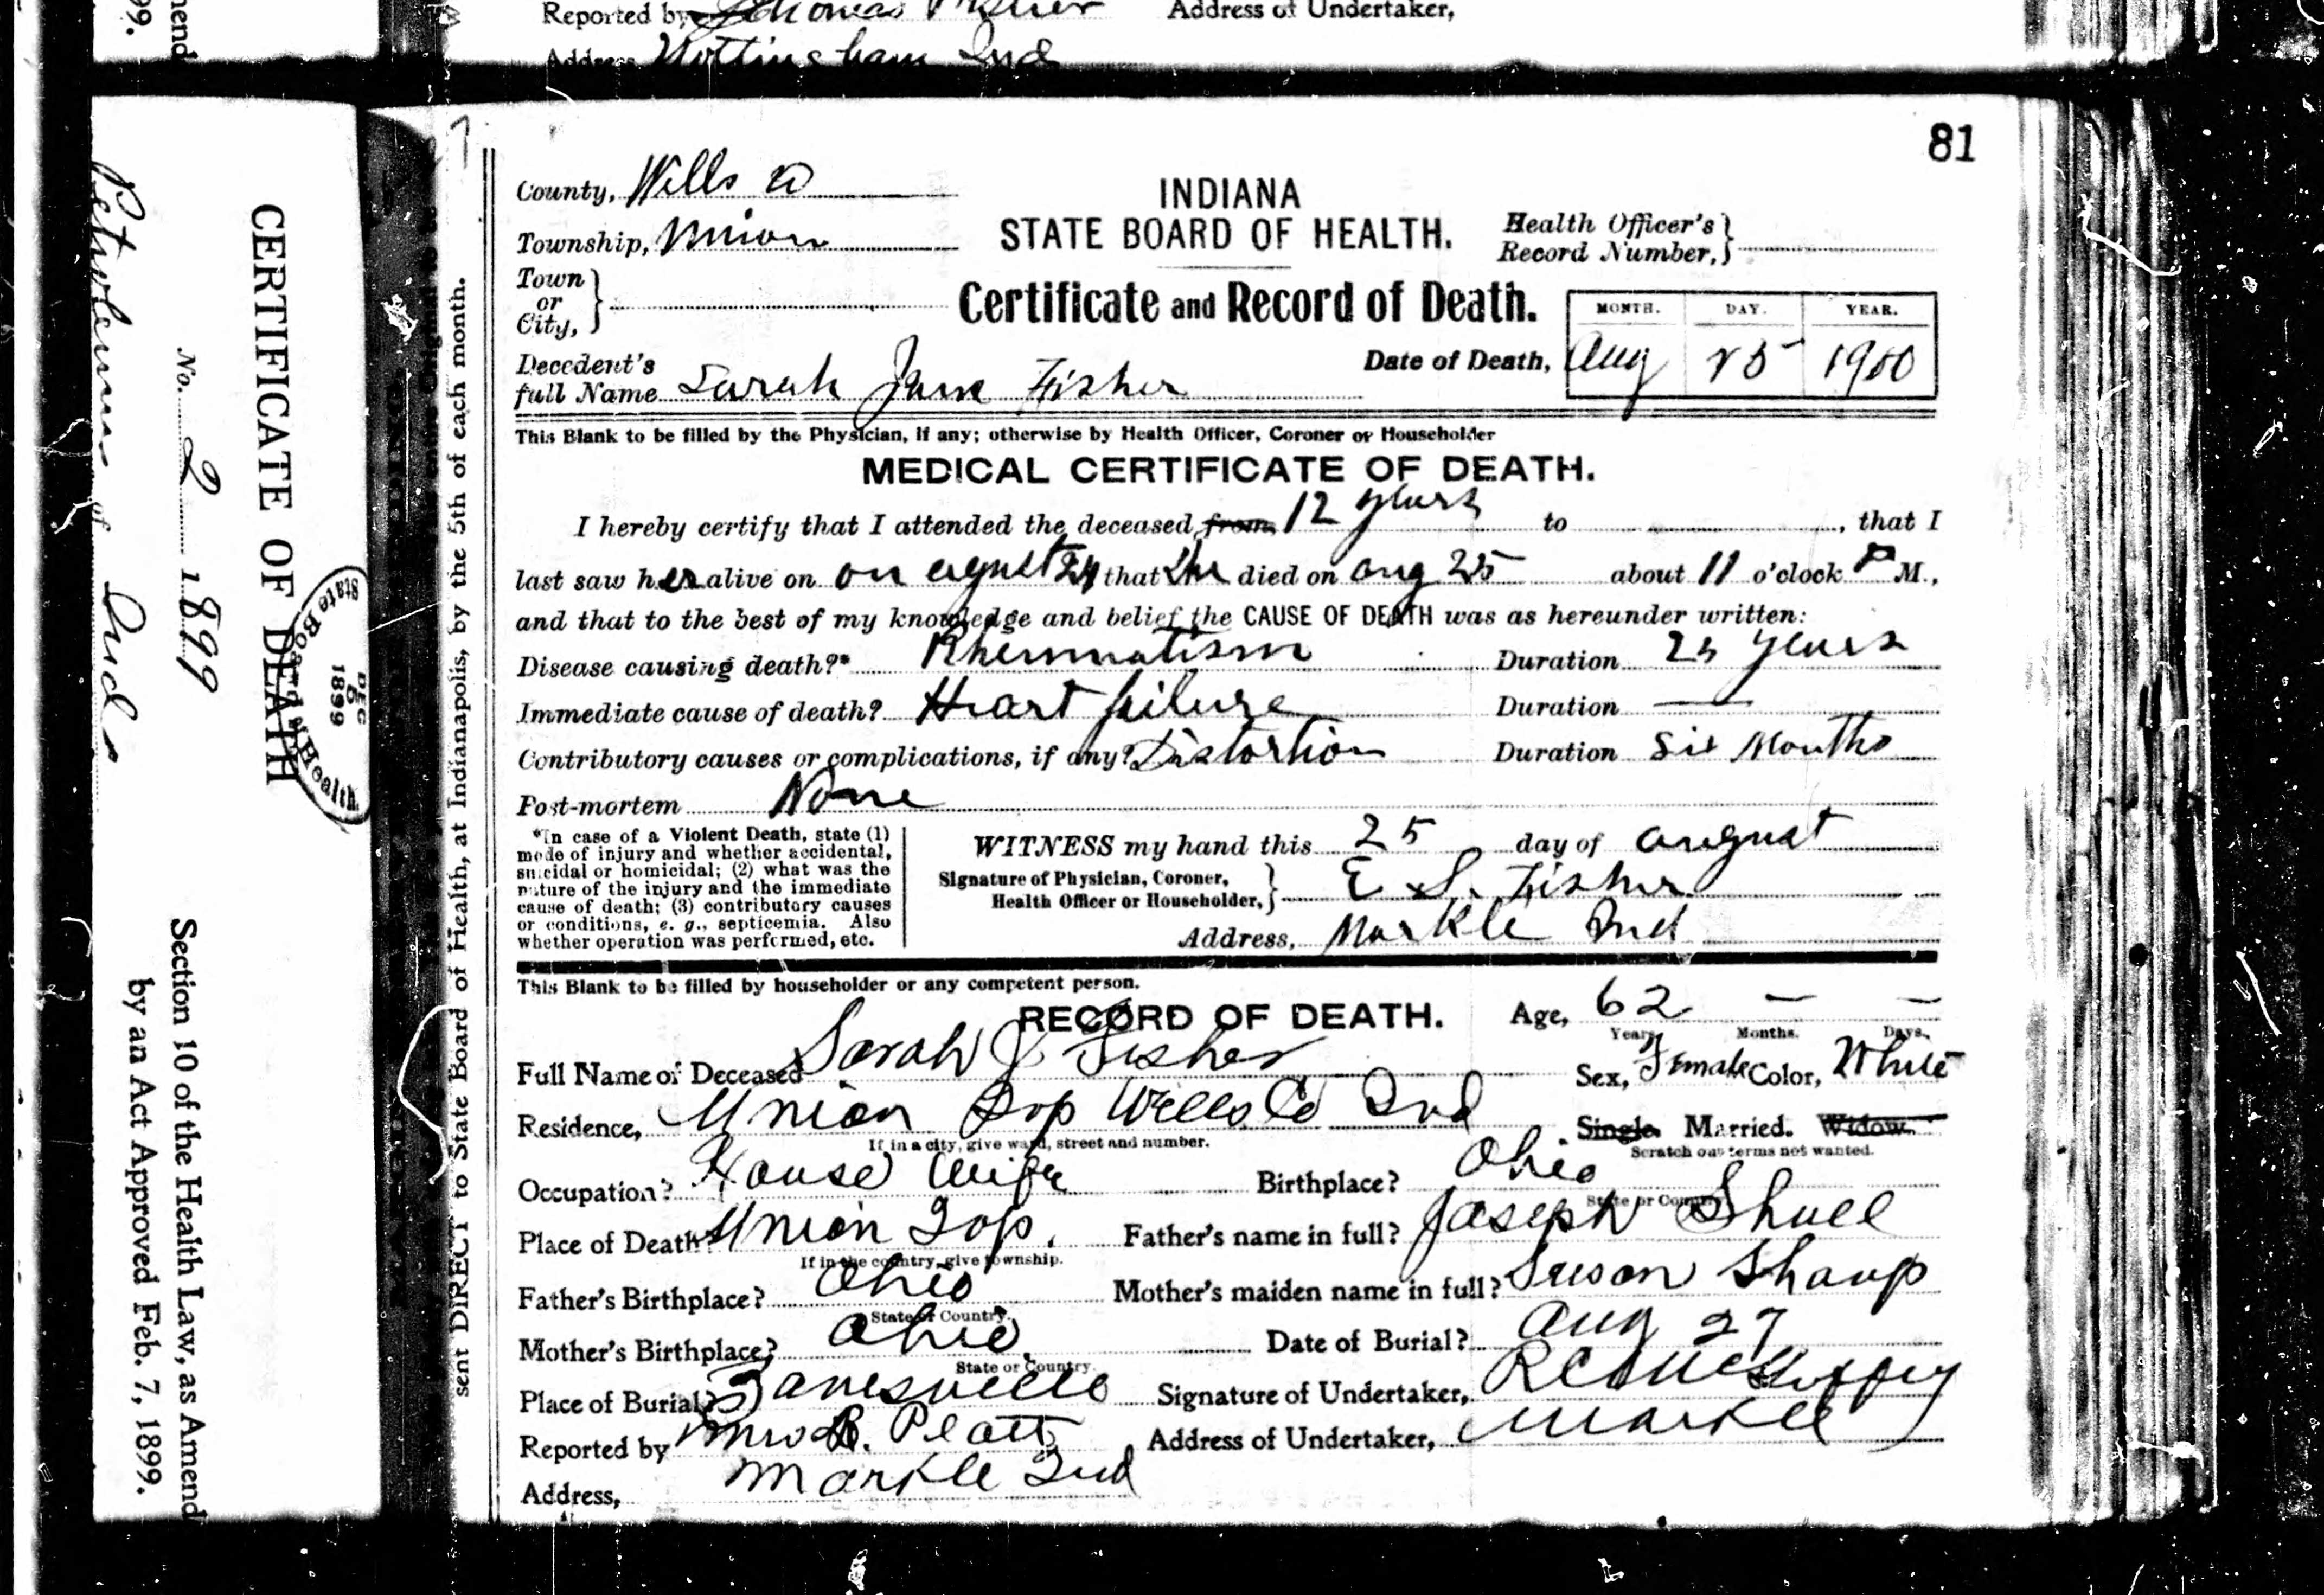 Reported by Thomas Fisher Address of Undertaker,
Address Nottingham Ind
81
County, Wells Co
Township, Union
Town or City,
INDIANA
STATE BOARD OF HEALTH.
Certificate and Record of Death.
Health Officer's Record Number,
MONTH. DAY. YEAR.
Date of Death, Aug 25 1900
Decedent's full Name Sarah Jane Fisher
This Blank to be filled by the Physician, if any; otherwise by Health Officer, Coroner or Householder
MEDICAL CERTIFICATE OF DEATH.
I hereby certify that I attended the deceased from 12 years to , that I
last saw her alive on on agust 24 that she died on aug 25 about 11 o'clock P M.,
and that to the best of my knowledge and belief the CAUSE OF DEATH was as hereunder written:
Disease causing death?* Rheumatism Duration 25 years
Immediate cause of death? Heart failure Duration —
Contributory causes or complications, if any? Distortion Duration Six Months
Post-mortem None
*In case of a Violent Death, state (1)
mode of injury and whether accidental,
suicidal or homicidal; (2) what was the
nature of the injury and the immediate
cause of death; (3) contributory causes
or conditions, e. g., septicemia. Also
whether operation was performed, etc.
WITNESS my hand this 25 day of august
Signature of Physician, Coroner,
Health Officer or Householder, E S. Fisher
Address, Markle Ind
This Blank to be filled by householder or any competent person.
RECORD OF DEATH. Age, 62 — —
Years Months. Days.
Full Name of Deceased Sarah J Fisher Sex, Female Color, White
Residence, Union Top Wells Co Ind Single. Married. Widow.
If in a city, give ward, street and number. Scratch out terms not wanted.
Occupation? House Wife Birthplace? Ohio
State or Country.
Place of Death? Union Top. Father's name in full? Joseph Shull
If in the country, give township.
Father's Birthplace? Ohio Mother's maiden name in full? Susan Shaup
State or Country.
Mother's Birthplace? Ohio Date of Burial? Aug 27
State or Country.
Place of Burial? Zanesville Signature of Undertaker,
Reported by Platt Address of Undertaker, Markle
Address, Markle Ind
sent DIRECT to State Board of Health, at Indianapolis, by the 5th of each month.
CERTIFICATE OF DEATH
No. 2 1899
Petroleum Ind
State Board of Health
DEC 1899
Section 10 of the Health Law, as Amend
by an Act Approved Feb. 7, 1899.
mend
99.